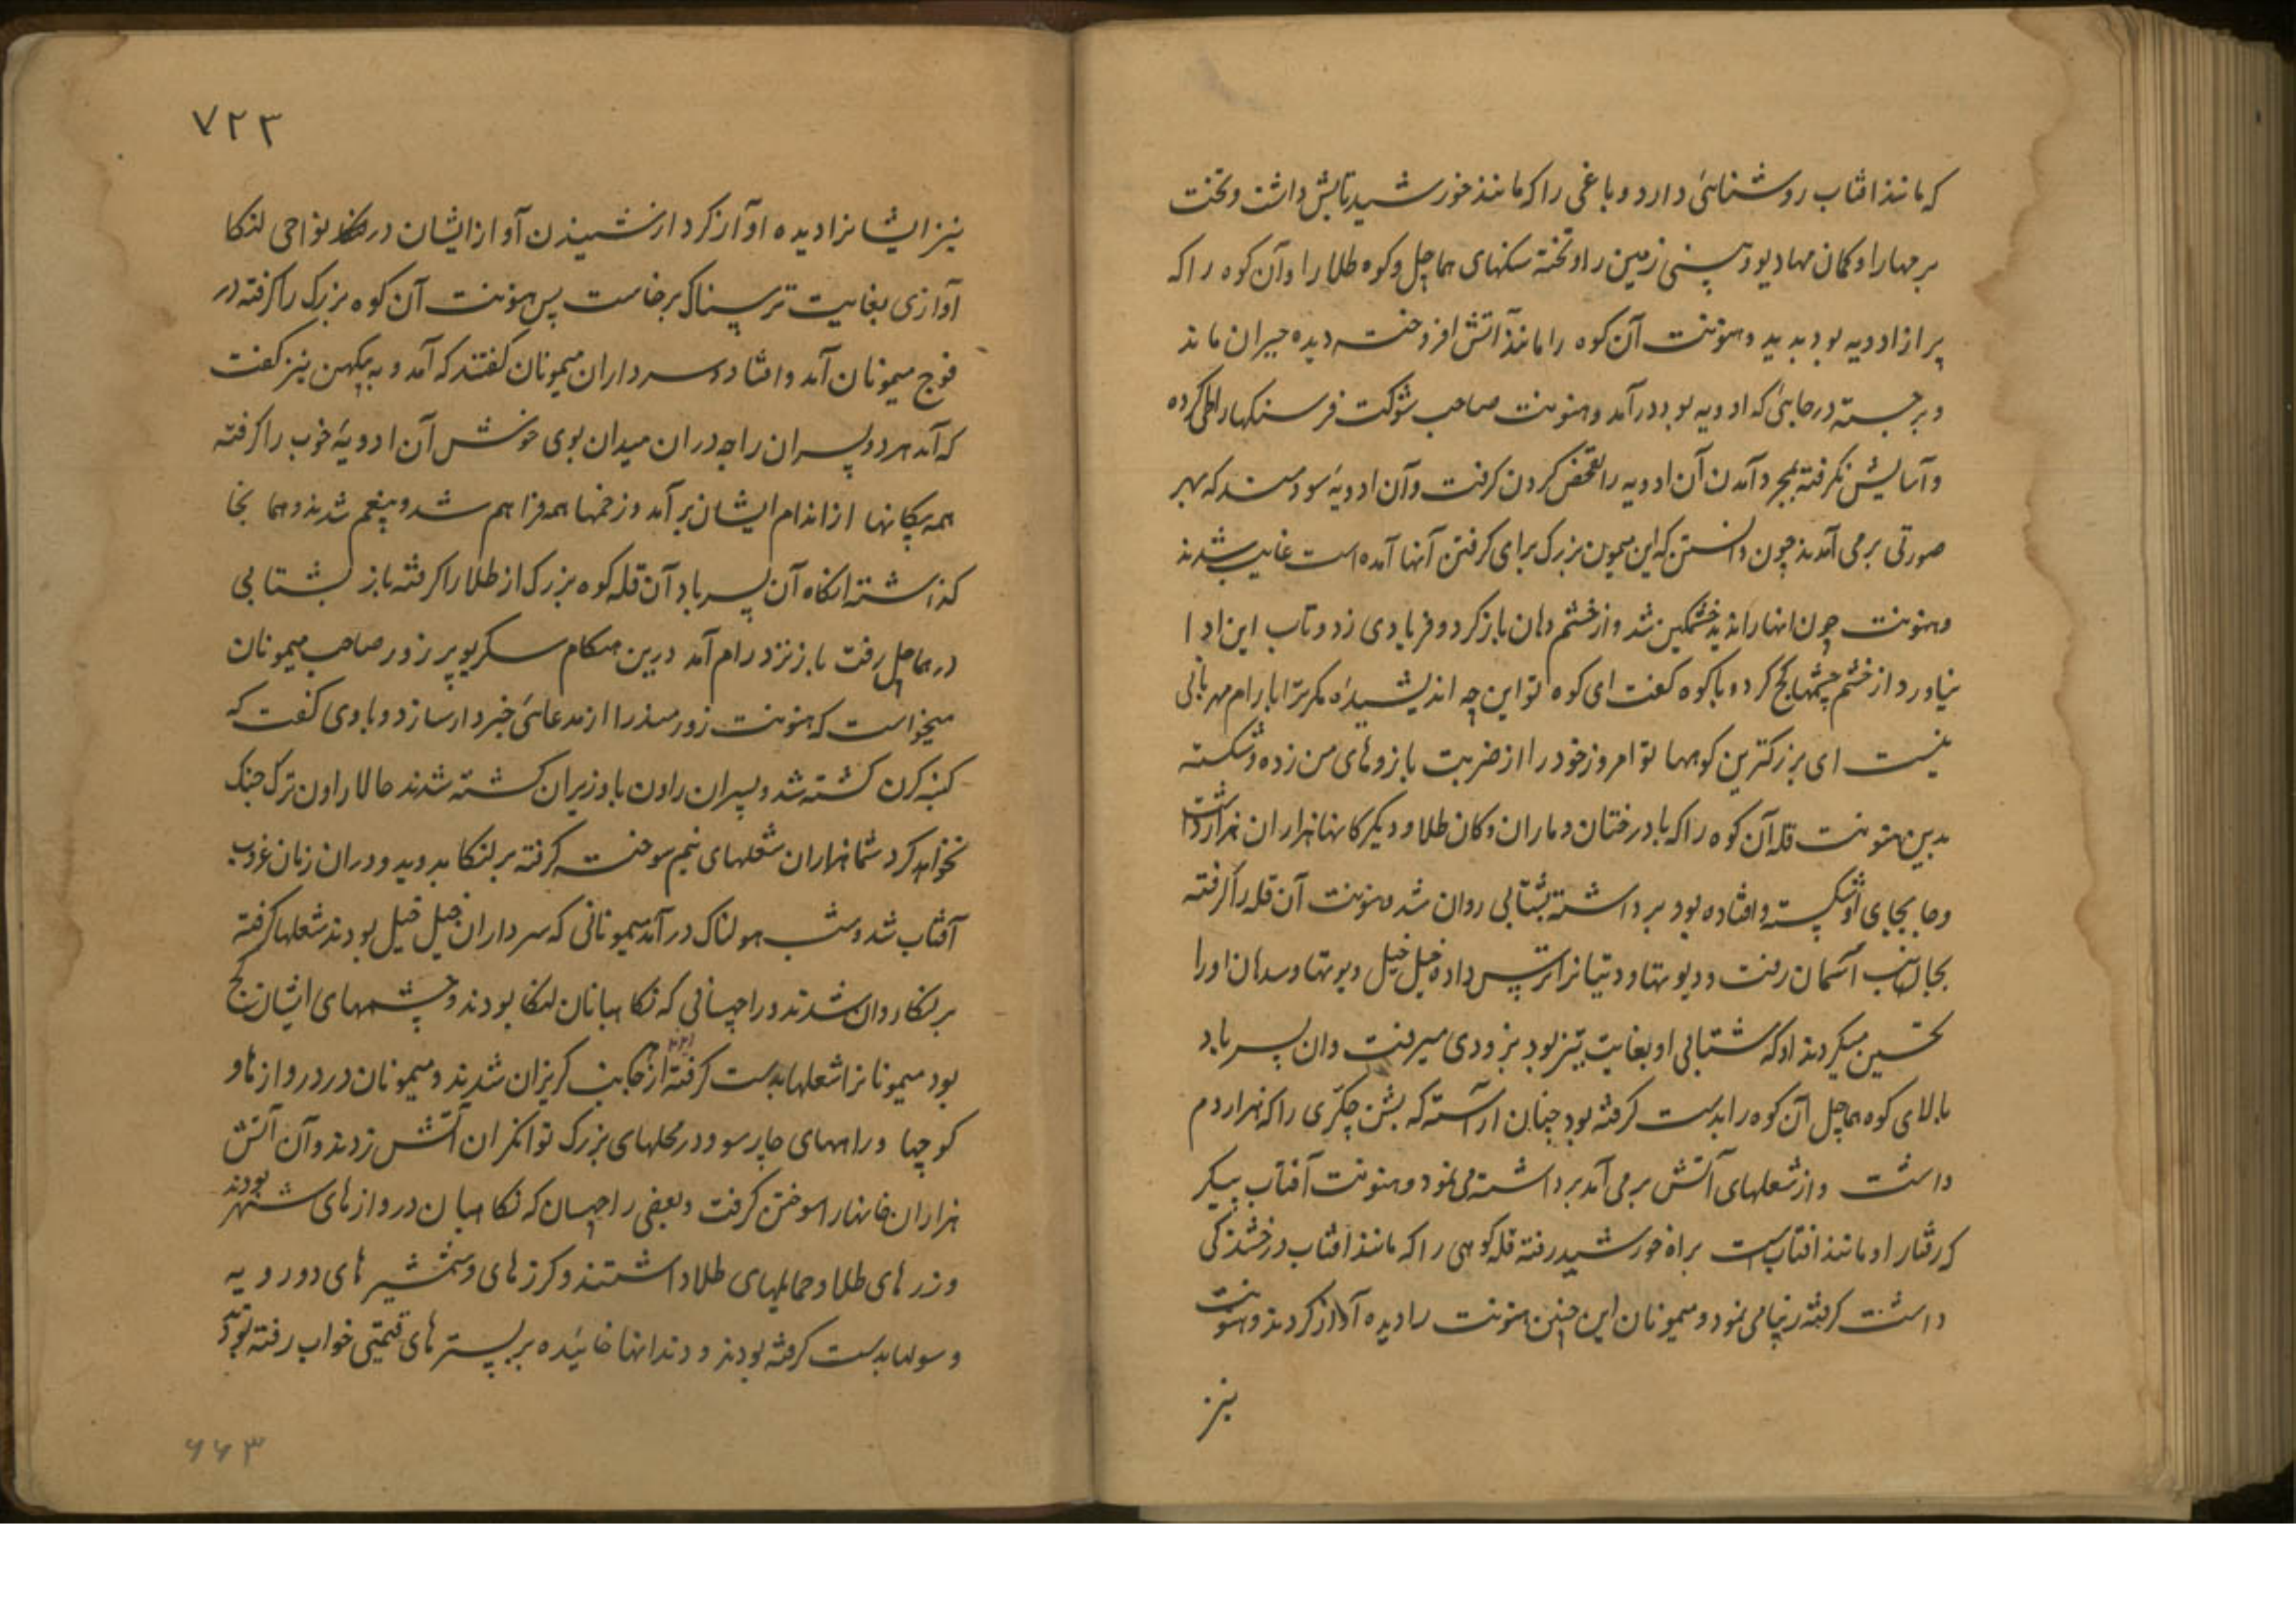 که مانند افتاب روشنائی دارد و باغی را که مانند خورشید تابش داشت و تخت
برمها را و کمان مهادیو و پستی زمین را و تخته سنکهای هماچل و کوه طلا را و آن کوه را که
پر از ادویه بود بدید و هنونت آن کوه را مانند آتش افروخته دیده حیران ماند
و برجسته در جایی که ادویه بود درآمد و هنونت صاحب شوکت فرسنکها را طی کرده
و آسایش نکرفته بمجرد آمدن آن ادویه را تفحص کردن کرفت و آن ادویهٔ سودمند که بهر
صورتی برمی آمدند چون دانستن که این میمون بزرک برای کرفتن آنها آمده است غایب شدند
و هنونت چون انها را ندید خشمکین شد و از خشم دهان باز کرد و فریادی زد و تاب این ادا
نیاورد از خشم چشمها کج کرد و با کوه کفت ای کوه تو این چه اندیشیدهٔ مکر ترا با رام مهربانی
نیست ای بزرکترین کوهها تو امروز خود را از ضربت بازوهای من زده و شکسته
ببین هنونت قله آن کوه را که با درختان و ماران و کان طلا و دیکر کانها هزاران هزار داشت
و جا بجای او شکسته و افتاده بود برداشته بشتابی روان شد هنونت آن قله را کرفته
بجانب آسمان رفت و دیوتها و دیتیانرا ترس داده خیل خیل دیوتها و سدهان او را
تحسین میکردند او که شتابی او بغایت تیز بود بزودی میرفت و ان پسر باد
بالای کوه هماچل آن کوه را بدست کرفته بود چنان اراسته که بشن چکری را که هزار دم
داشت و از شعلهای آتش برمی آمد برداشته می نمود و هنونت آفتاب پیکر
که رفتار او مانند افتاب است براه خورشید رفته قله کوهی را که مانند افتاب درخشندکی
داشت کرفته زیبا می نمود و میمونان این چنین هنونت را دیده آواز کردند و هنونت
نیز
۷۲۳
نیز ایشانرا دیده او آواز کرد از شنیدن آواز ایشان در نواحی لنکا
آوازی بغایت ترسناک برخاست پس هنونت آن کوه بزرک را کرفته در
فوج میمونان آمد و افتاد و سرداران میمونان کفتند که آمد و به بیکهن نیز کفت
که آمد هر دو پسران راجه دران میدان بوی خوش آن ادویهٔ خوب را کرفته
همه پیکانها از اندام ایشان برآمد و زخمها همه فراهم شد و بیغم شدند و همانجا
کذاشته انکاه آن پسر باد آن قله کوه بزرک از طلا را کرفته باز بشتابی
در هماچل رفت باز نزد رام آمد درین هنکام سکریو پر زور صاحب میمونان
میخواست که هنونت زورمند را از مدعائی خبردار سازد و با وی کفت که
کنبه کرن کشته شد و پسران راون با وزیران کشته شدند حالا راون ترک جنک
نخواهد کرد شما هزاران شعلهای نیم سوخته کرفته بر لنکا بدوید و دران زمان غروب
آفتاب شد و شب هولناک درآمد میمونانی که سرداران خیل خیل بودند شعلها کرفته
بر لنکا روان شدند و راچهسانی که نکاهبانان لنکا بودند و چشمهای ایشان کج
بود میمونانرا شعلها بدست کرفته از هر جانب کریزان شدند و میمونان در دروازها و
کوچها و راههای چارسو و در محلهای بزرک توانکران آتش زدند و آن آتش
هزاران خانها را سوختن کرفت و بعضی راچهسان که نکاهبان دروازهای شهر بودند
و زرهای طلا و حمایلهای طلا داشتند و کرزهای و شمشیرهای دو رویه
و سولها بدست کرفته بودند و دندانها خائیده بر بسترهای قیمتی خواب رفته بودند
۶۶۳